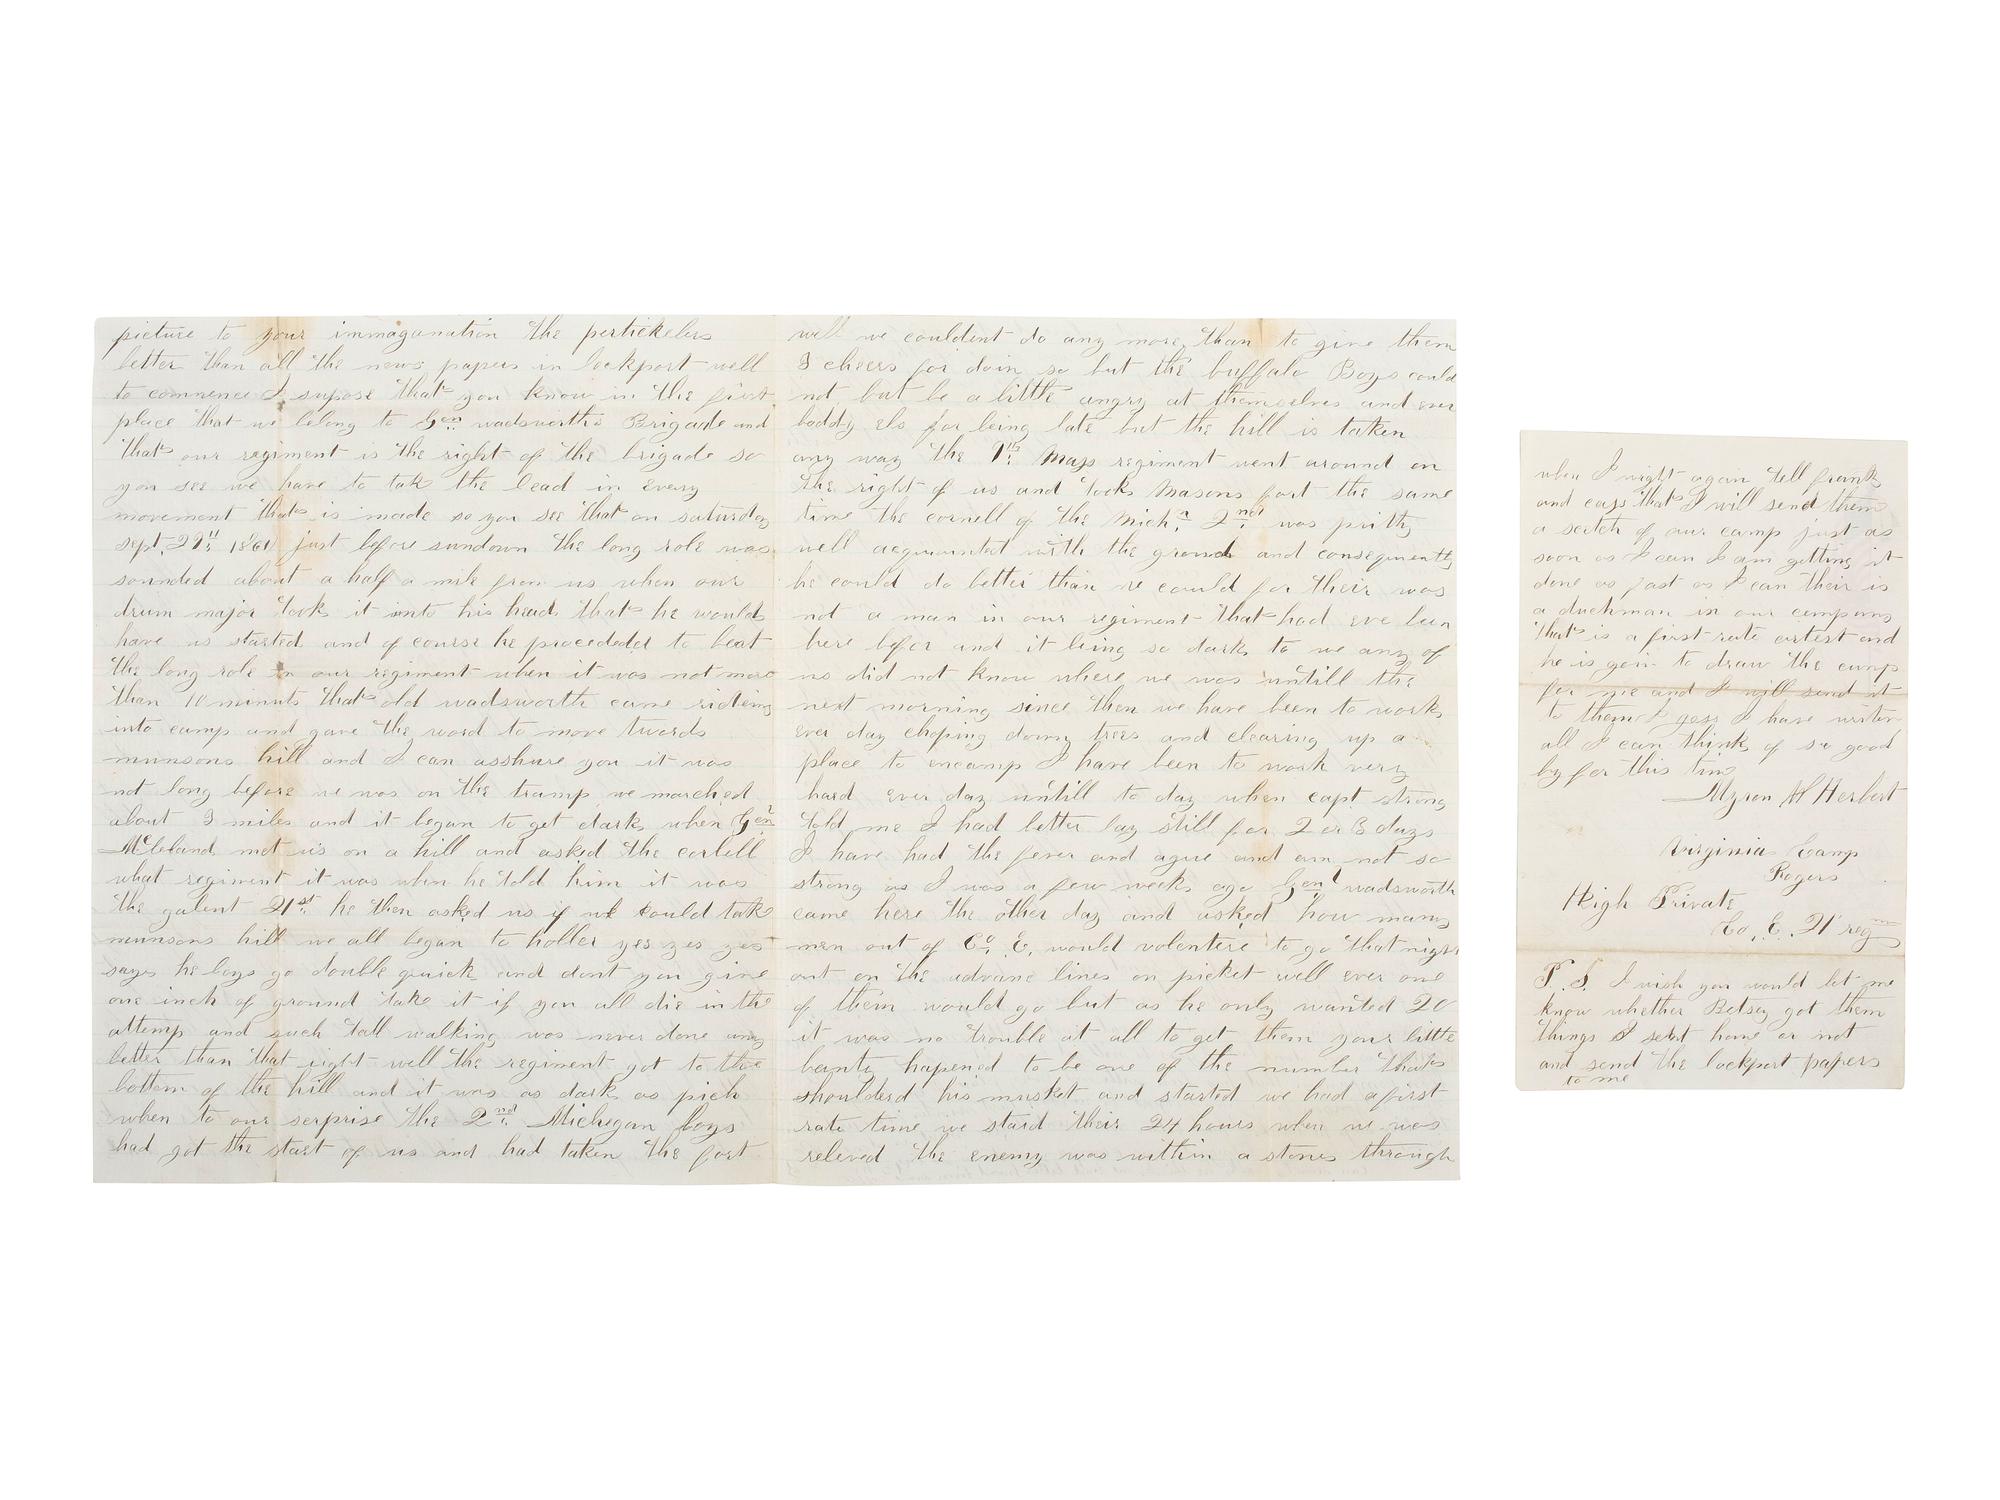 picture to your immaganation the pertickelers
better than all the news papers in lockport well
to commence I supose that you know in the first
place that we belong to Gen wadsworths Brigade and
that our regiment is the right of the brigade so
you see we have to take the lead in every
movement that is made so you see that on saturday
sept, 1861 just before sundown the long role was
sounded about a half a mile from us when our
drum major took it into his head that he would
have us started and of course he procededd to beat
the long role in our regiment when it was not more
than 10 minuts that old wadsworth came rideing
into camp and gave the word to move twords
munsons hill and I can asshure you it was
not long before we was on the tramp we marched
about 3 miles and it began to get dark when Gen
McCleland met us on a hill and asked the
what regiment it was when he told him it was
the galent 21st he then asked us if we could take
munsons hill we all began to holler yes yes yes
says he boys go double quick and dont you give
one inch of ground take it if you all die in the
attemp and such tall walking was never done any
better than that night well the regiment got to the
bottom of the hill and it was as dark as pich
when to our serprise the 2nd Michegan boys
had got the start of us and had taken the fort
well we couldent do any more than to give them
3 cheers for doin so but the buffalo Boys could
not but be a little angry at themselves and ever
boddy els for being late but the hill is taken
any way the Mass regiment went around on
the right of us and took Masons fort the same
time the cornell of the Mich 2nd was pritty
well acquainted with the ground and consequently
he could do better than we could for their was
not a man in our regiment that had eve been
here befor and it being so dark to we any of
us did not know where we was untill the
next morning since then we have been to work
ever day choping down trees and clearing up a
place to encamp I have been to work very
hard ever day untill to day when capt strong
told me I had better lay still for 2 or 3 days
I have had the fever and ague and am not so
strong as I was a few weeks ago Genl wadsworth
came here the other day and asked how many
men out of Co. E, would volentere to go that night
out on the advanc lines on picket well ever one
of them would go but as he only wanted 20
it was no trouble at all to get them your little
hapened to be one of the number that
shoulderd his musket and started we had a first
rate time we staid their 24 hours when we was
releved the enemy was within a stones through
when I wright again tell frank
and cass that I will send them
a scetch of our camp just as
soon as I can I am getting it
done as fast as I can their is
a duchman in our company
that is a first rate artest and
he is goin to draw the camp
for me and I will send it
to them I gess I have writen
all I can think of so good
by for this time
Myron H Herbert
Virginia Camp
Rogers
High Private
Co, E, 21 regm
P. S. I wish you would let me
know whether Betsey got them
things I sent home or not
and send the lockport papers
to me